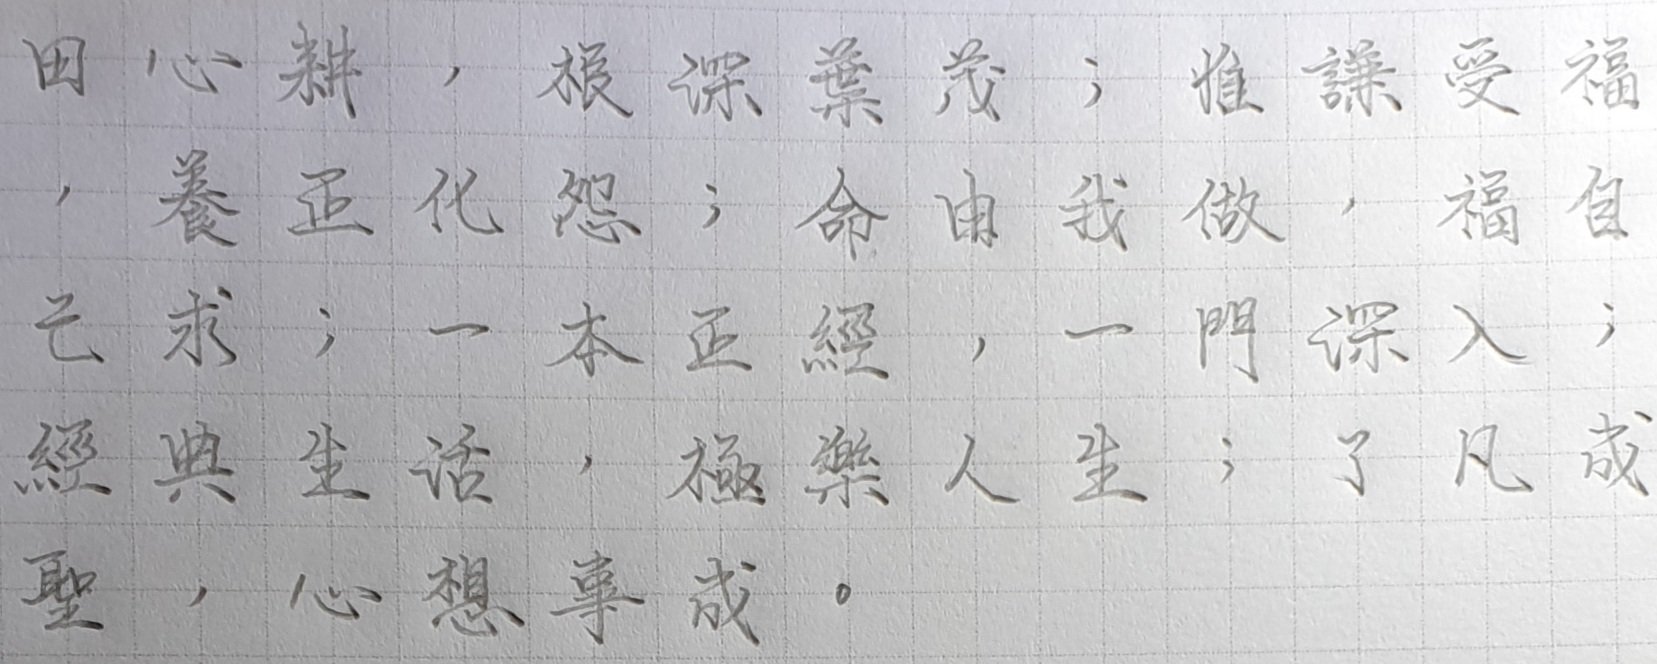 田心耕，根深葉茂；惟謙受福
，養正化怨；命由我做，福自
己求；一本正經，一門深入；
經典生活，極樂人生；了凡成
聖，心想事成。